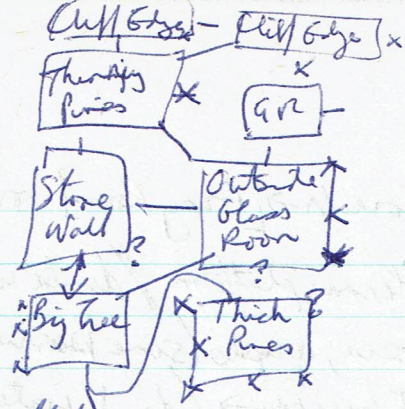 Cliff Edge
Cliff Edge
Thentify
Pines
GR
Stone
Wall
Outside
Glass
Room
?
?
Big Tree
Thick
Pines
?